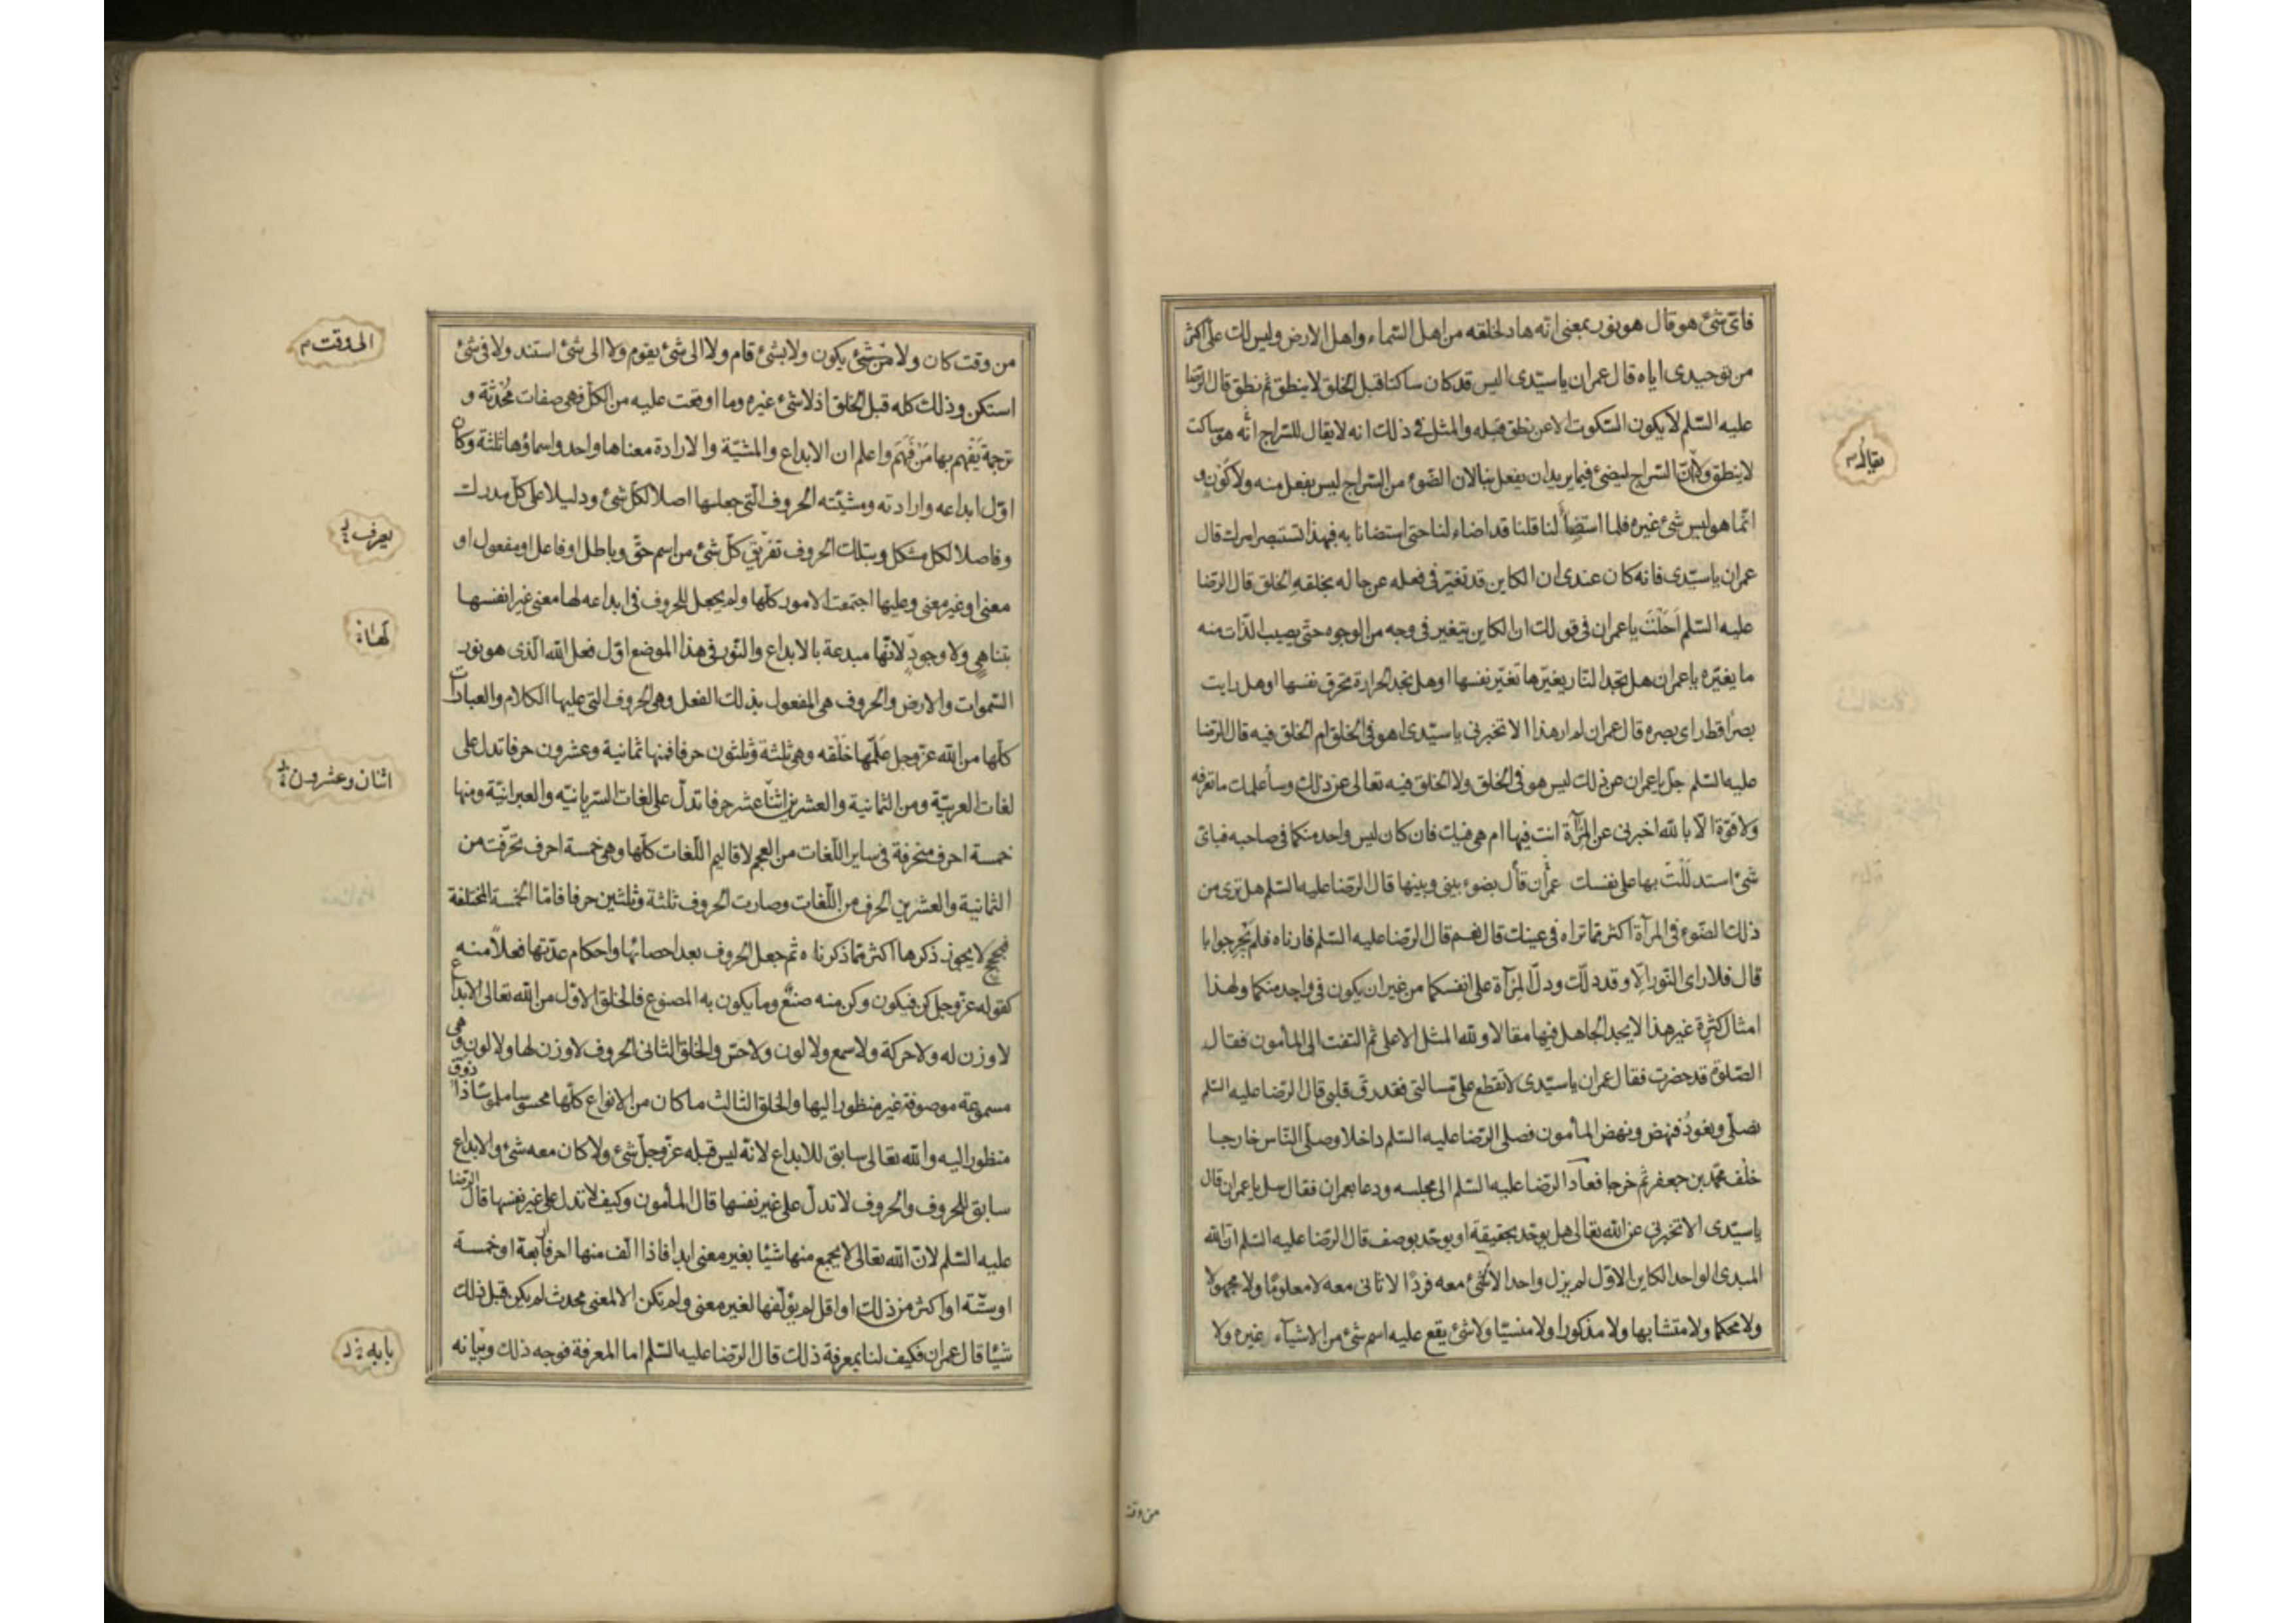 فاىّ شئ هو قال هو نور بمعنى انّه هاد لخلقه من اهل السّماء واهل الارض وليس لك علىّ اكثر
من توحيدى اياه قال عمران ياسيّدى اليس قد كان ساكتا قبل الخلق لا ينطق ثم نطق قال الرّضا
عليه السّلم لا يكون السّكوت الا عن نطق قبله والمثل فى ذلك انه لا يقال للسّراج انّه هو ساكت
لا ينطق ولا انّ السّراج ليضئ فيما يريد ان يفعل بنا لان الضّوء من السّراج ليس بفعل منه ولا كون و
يقال م
انّما هو ليس شئ غيره فلما استضاء لنا قلنا قد اضاء لنا حتى استضانا به فبهذا تستبصر امرك قال
عمران ياسيّدى فانه كان عندى ان الكاين قد تغيّر فى فعله عن حاله بخلقه الخلق قال الرّضا
عليه السّلم احلت يا عمران فى قولك ان الكاين يتغير فى وجه من الوجوه حتّى يصيب الذّات منه
ما يغيّره يا عمران هل تجد النّار يغيّرها تغيّر نفسها او هل تجد الحرارة تحرق نفسها او هل رايت
بصرا قط راى بصره قال عمران لم ار هذا الا تخبرنى ياسيّدى اهو فى الخلق ام الخلق فيه قال الرّضا
عليه السّلم جلّ يا عمران عن ذلك ليس هو فى الخلق ولا الخلق فيه تعالى عن ذلك وسأعلمك ما تعرفه
ولا قوّة الّا بالله اخبرنى عن المرآة انت فيها ام هى فيك فان كان ليس واحد منكما فى صاحبه فباىّ
شئ استدللت بها على نفسك عمران قال بضوء بينى وبينها قال الرّضا عليه السّلم هل ترى من
ذلك الضّوء فى المرآة اكثر ممّا تراه فى عينك قال نعم قال الرّضا عليه السّلم فارناه فلم يحر جوابا
قال فلا راى النّور الّا وقد دلّك ودلّ المرآة على انفسكما من غير ان يكون فى واحد منكما ولهذا
امثال كثيرة غير هذا لا يجد الجاهل فيها مقالا ولله المثل الاعلى ثم التفت الى المأمون فقال
الصّلوة قد حضرت فقال عمران ياسيّدى لا تقطع علىّ مسالتى فقد رقّ قلبى قال الرّضا عليه السّلم
نصلّى ونعود فنهض ونهض المأمون فصلى الرّضا عليه السّلم داخلا وصلّى النّاس خارجا
خلف محمّد بن جعفر ثم خرجا فعاد الرّضا عليه السّلم الى مجلسه ودعا بعمران فقال سل يا عمران قال
ياسيّدى الا تخبرنى عن الله تعالى هل يوحّد بحقيقة او يوحّد بوصف قال الرّضا عليه السّلم انّ الله
المبدئ الواحد الكاين الاوّل لم يزل واحدا لا شئ معه فردًا لا ثانى معه لا معلومًا ولا مجهولا
ولا محكما ولا متشابها ولا مذكورا ولا منسيّا ولا شئ يقع عليه اسم شئ من الاشيآء غيره ولا
من وقت
من وقت كان ولا من شئ يكون ولا بشئ قام ولا الى شئ يقوم ولا الى شئ استند ولا فى شئ
الى وقت م
استكن وذلك كله قبل الخلق اذ لا شئ غيره وما اوقعت عليه من الكلّ فهى صفات محدثة و
ترجمة يفهم بها من فهم واعلم ان الابداع والمشيّة والارادة معناها واحد واسماؤها ثلثة وكان
اوّل ابداعه وارادته ومشيّته الحروف الّتى جعلها اصلا لكلّ شئ ودليلا على كلّ مدرك
وفاصلا لكل مشكل وبتلك الحروف تفريق كلّ شئ من اسم حقّ وباطل او فاعل او مفعول او
يعرف
معنى او غير معنى وعليها اجتمعت الامور كلّها ولم يجعل للحروف فى ابداعه لها معنى غير انفسها
لها
بتناهى ولا وجود لانّها مبدعة بالابداع والنّور فى هذا الموضع اوّل فعل الله الّذى هو نور
السّموات والارض والحروف هى المفعول بذلك الفعل وهى الحروف التى عليها الكلام والعبارات
كلّها من الله عزّ وجل علّمها خلقه وهى ثلثة وثلثون حرفا فمنها ثمانية وعشرون حرفا تدل على
اثنان وعشرون
لغات العربيّة ومن الثمانية والعشرين اثنا عشر حرفا تدلّ على لغات السّريانيّه والعبرانيّة ومنها
خمسة احرف متحرفة فى ساير اللّغات من العجم لاقاليم اللّغات كلّها وهى خمسة احرف تحرّفت من
الثمانية والعشرين الحرف من اللّغات وصارت الحروف ثلثة وثلثين حرفا فامّا الخمسة المختلفة
فحجج لا يجوز ذكرها اكثر ممّا ذكرناه ثم جعل الحروف بعد احصائها واحكام عدّتها فعلاً منه
كقوله عزّ وجل كن فيكون وكن منه صنع وما يكون به المصنوع فالخلق الاوّل من الله تعالى الابداع
لا وزن له ولا حركة ولا سمع ولا لون ولا حسّ والخلق الثانى الحروف لا وزن لها ولا لون وهى
مسموعة موصوفة غير منظور اليها والخلق الثالث ما كان من الانواع كلّها محسوسا ملموسا ذا ذوق
منظور اليه والله تعالى سابق للابداع لانّه ليس قبله عزّ وجلّ شئ ولا كان معه شئ والابداع
سابق للحروف والحروف لا تدلّ على غير نفسها قال المأمون وكيف لا تدل على غير نفسها قال الرّضا
عليه السّلم لانّ الله تعالى لا يجمع منها شيئا بغير معنى ابدا فاذا الّف منها احرفا اربعة او خمسة
او ستّة او اكثر من ذلك او اقل لم يؤلّفها لغير معنى ولم تكن الا لمعنى محدث لم يكن قبل ذلك
شيئا قال عمران فكيف لنا بمعرفة ذلك قال الرّضا عليه السّلم اما المعرفة فوجه ذلك وبيانه
بابه